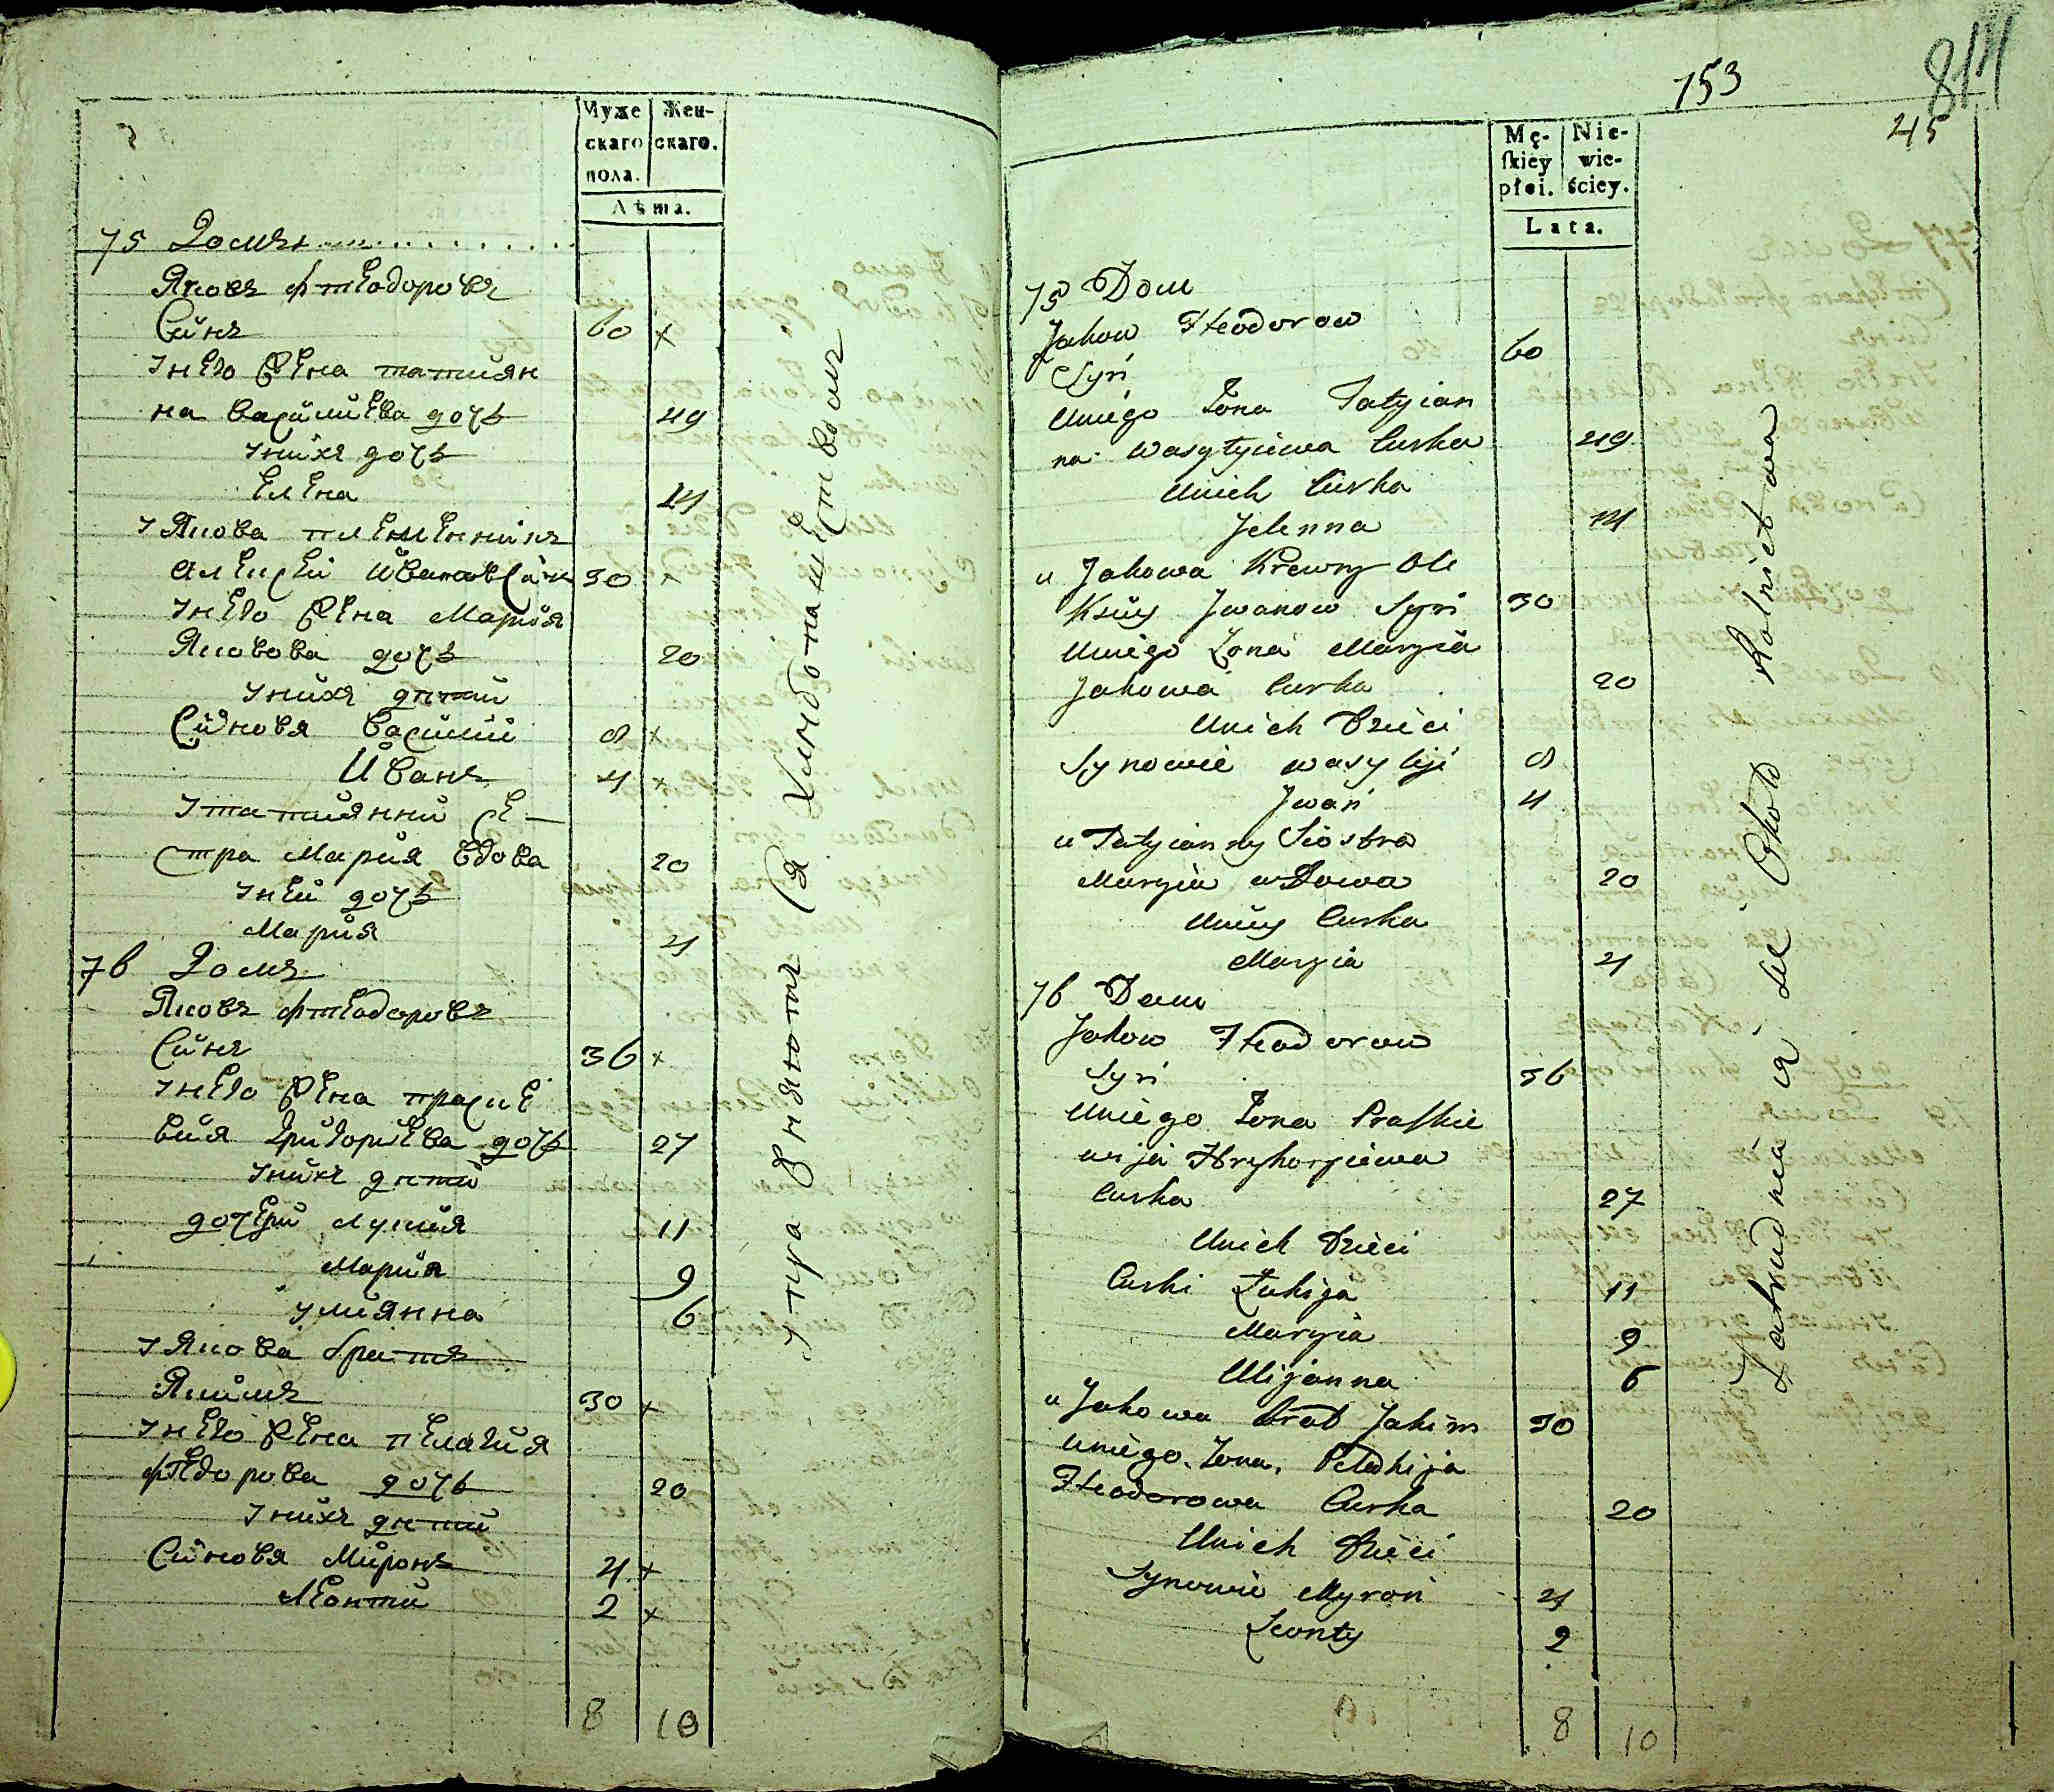 Муже Жен-
скаго скаго.
пола.
Лѣта.
75 Домъ
Яковъ Фтеодоровъ
Синъ 60 ×
Унего Жена татиян
на Василиева дочь 49
Унихъ дочь
Елена 14
У Якова племенникъ
Алексей Ивановъ Синъ 30 ×
Унего Жена Мария
Яковова дочь 20
Унихъ дети
Синовя Василий 8 ×
Иванъ 4 ×
У татиянни Се-
стра Мария Вдова 20
Уней дочь
Мария 4
76 Домъ
Яковъ Фтеодоровъ
Синъ 36 ×
Унего Жена праске
вия Григориева дочь 27
Унихъ дети
дочери Лукия 11
Мария 9
Улиянна 6
У Якова братъ
Якимъ 30 ×
Унего Жена пелагия
Фтедорова дочь 20
Унихъ дети
Синовя Миронъ 4 ×
Леонтий 2 ×
8 10
Упра Жняютъ Ся Хлибопашеством
153
814
45
Mę- Nie-
skiey wie-
płci. ściey.
Lata.
75 Dom
Jakow Fteodorow
Syn 60
Uniego Żona Tatyian
na Wasylyiewa Curka 49
Unich Curka
Jelenna 14
u Jakowa Krewny Ole
Ksiey Jwanow Syn 30
Uniego Żona Maryia
Jakowa Curka 20
Unich Dzieci
Synowie wasyliji 8
Jwan 4
u Tatyianny Siostra
Maryia wdowa 20
Uniey Curka
Maryia 4
76 Dom
Jakow Fteodorow
Syn 36
Uniego Żona Praskie
wija Hryhoryiewa
Curka 27
Unich Dzieci
Curki Łukija 11
Maryia 9
Ulijanna 6
u Jakowa brat Jakim 30
Uniego Żona Pelahija
Fteodorowa Curka 20
Unich Dzieci
Synowie Myron 4
Leonty 2
8 10
Zatrudniaią się Około Rolnictwa